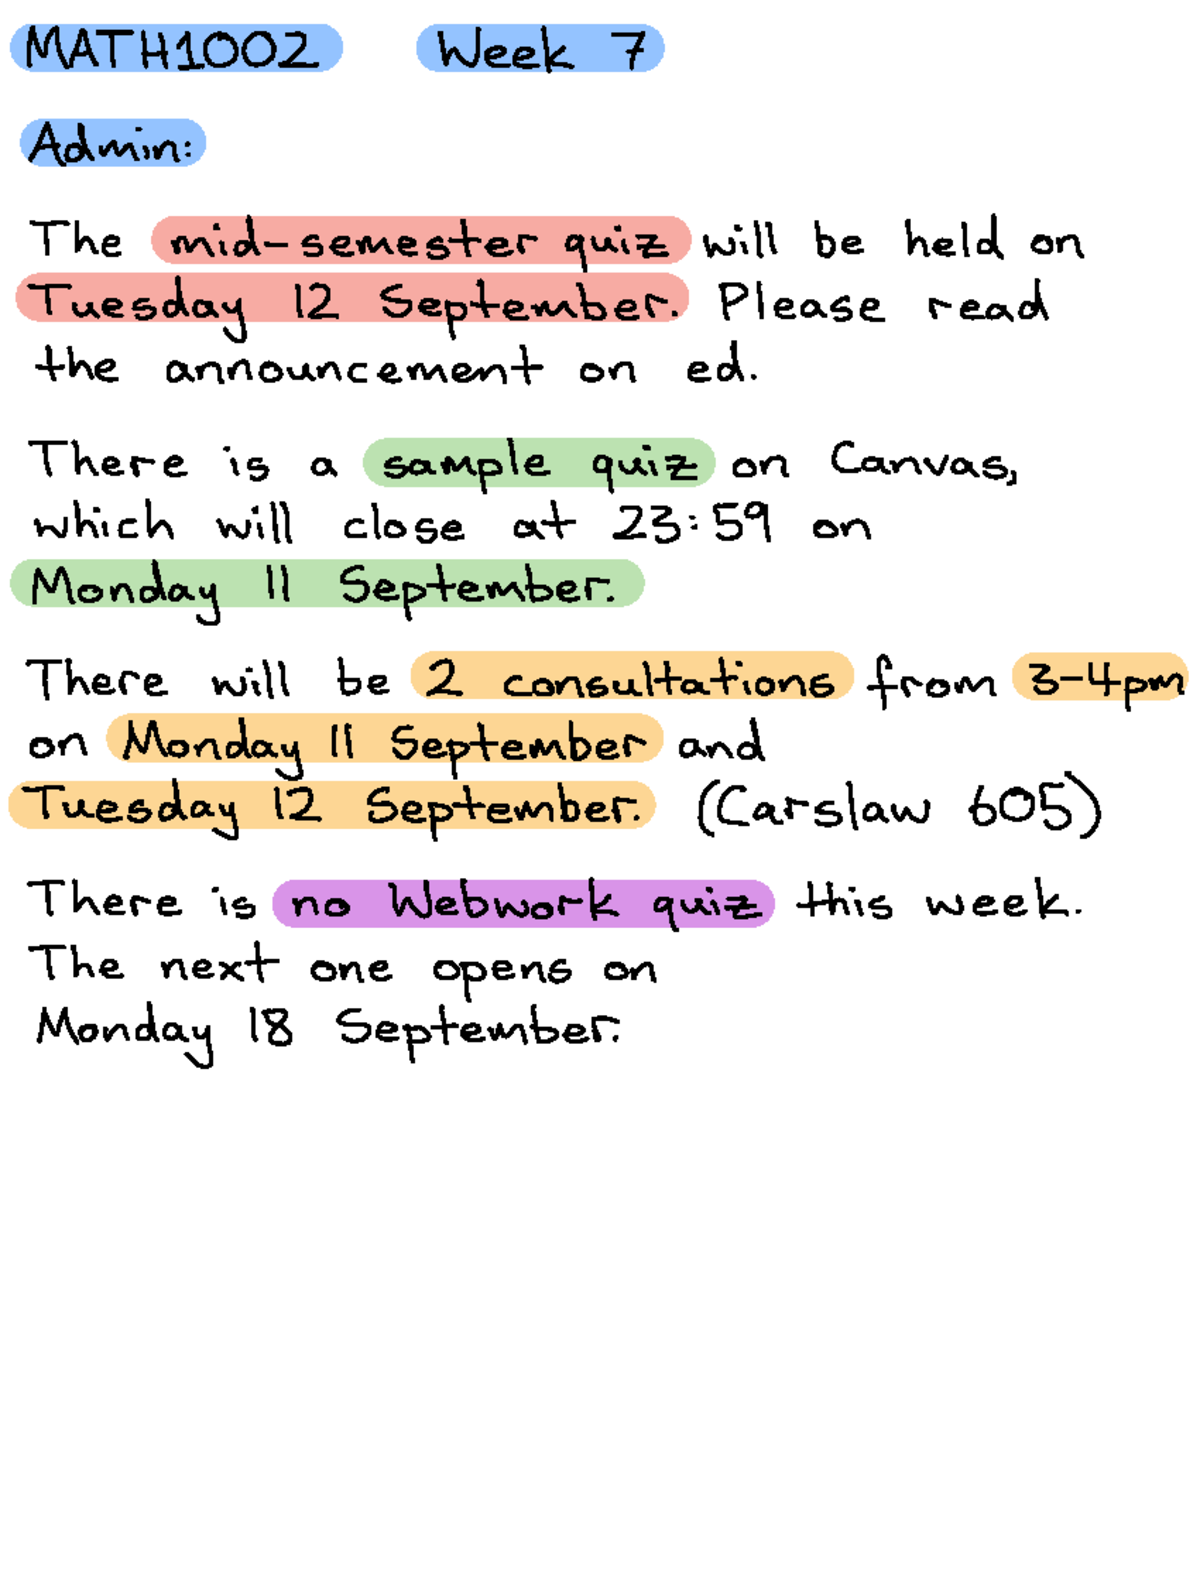 MATH1002 Week 7
Admin:
The mid-semester quiz will be held on
Tuesday 12 September. Please read
the announcement on ed.
There is a sample quiz on Canvas,
which will close at 23:59 on
Monday 11 September.
There will be 2 consultations from 3-4pm
on Monday 11 September and
Tuesday 12 September. (Carslaw 605)
There is no Webwork quiz this week.
The next one opens on
Monday 18 September.